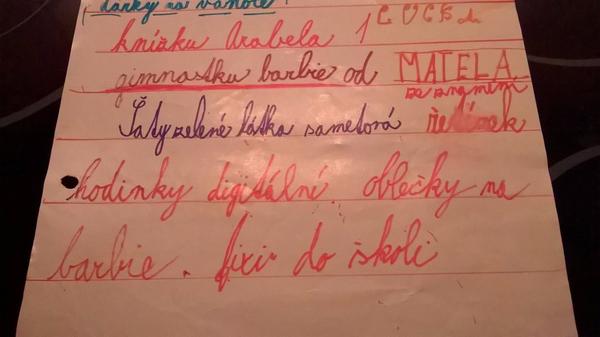 dárky na vánoce
knížku Arabela 1
gimnastku barbie od MATELA
se znamením
Šaty zelené látka sametová řetízek
hodinky digitální. oblečky na
barbie. fixi do školi